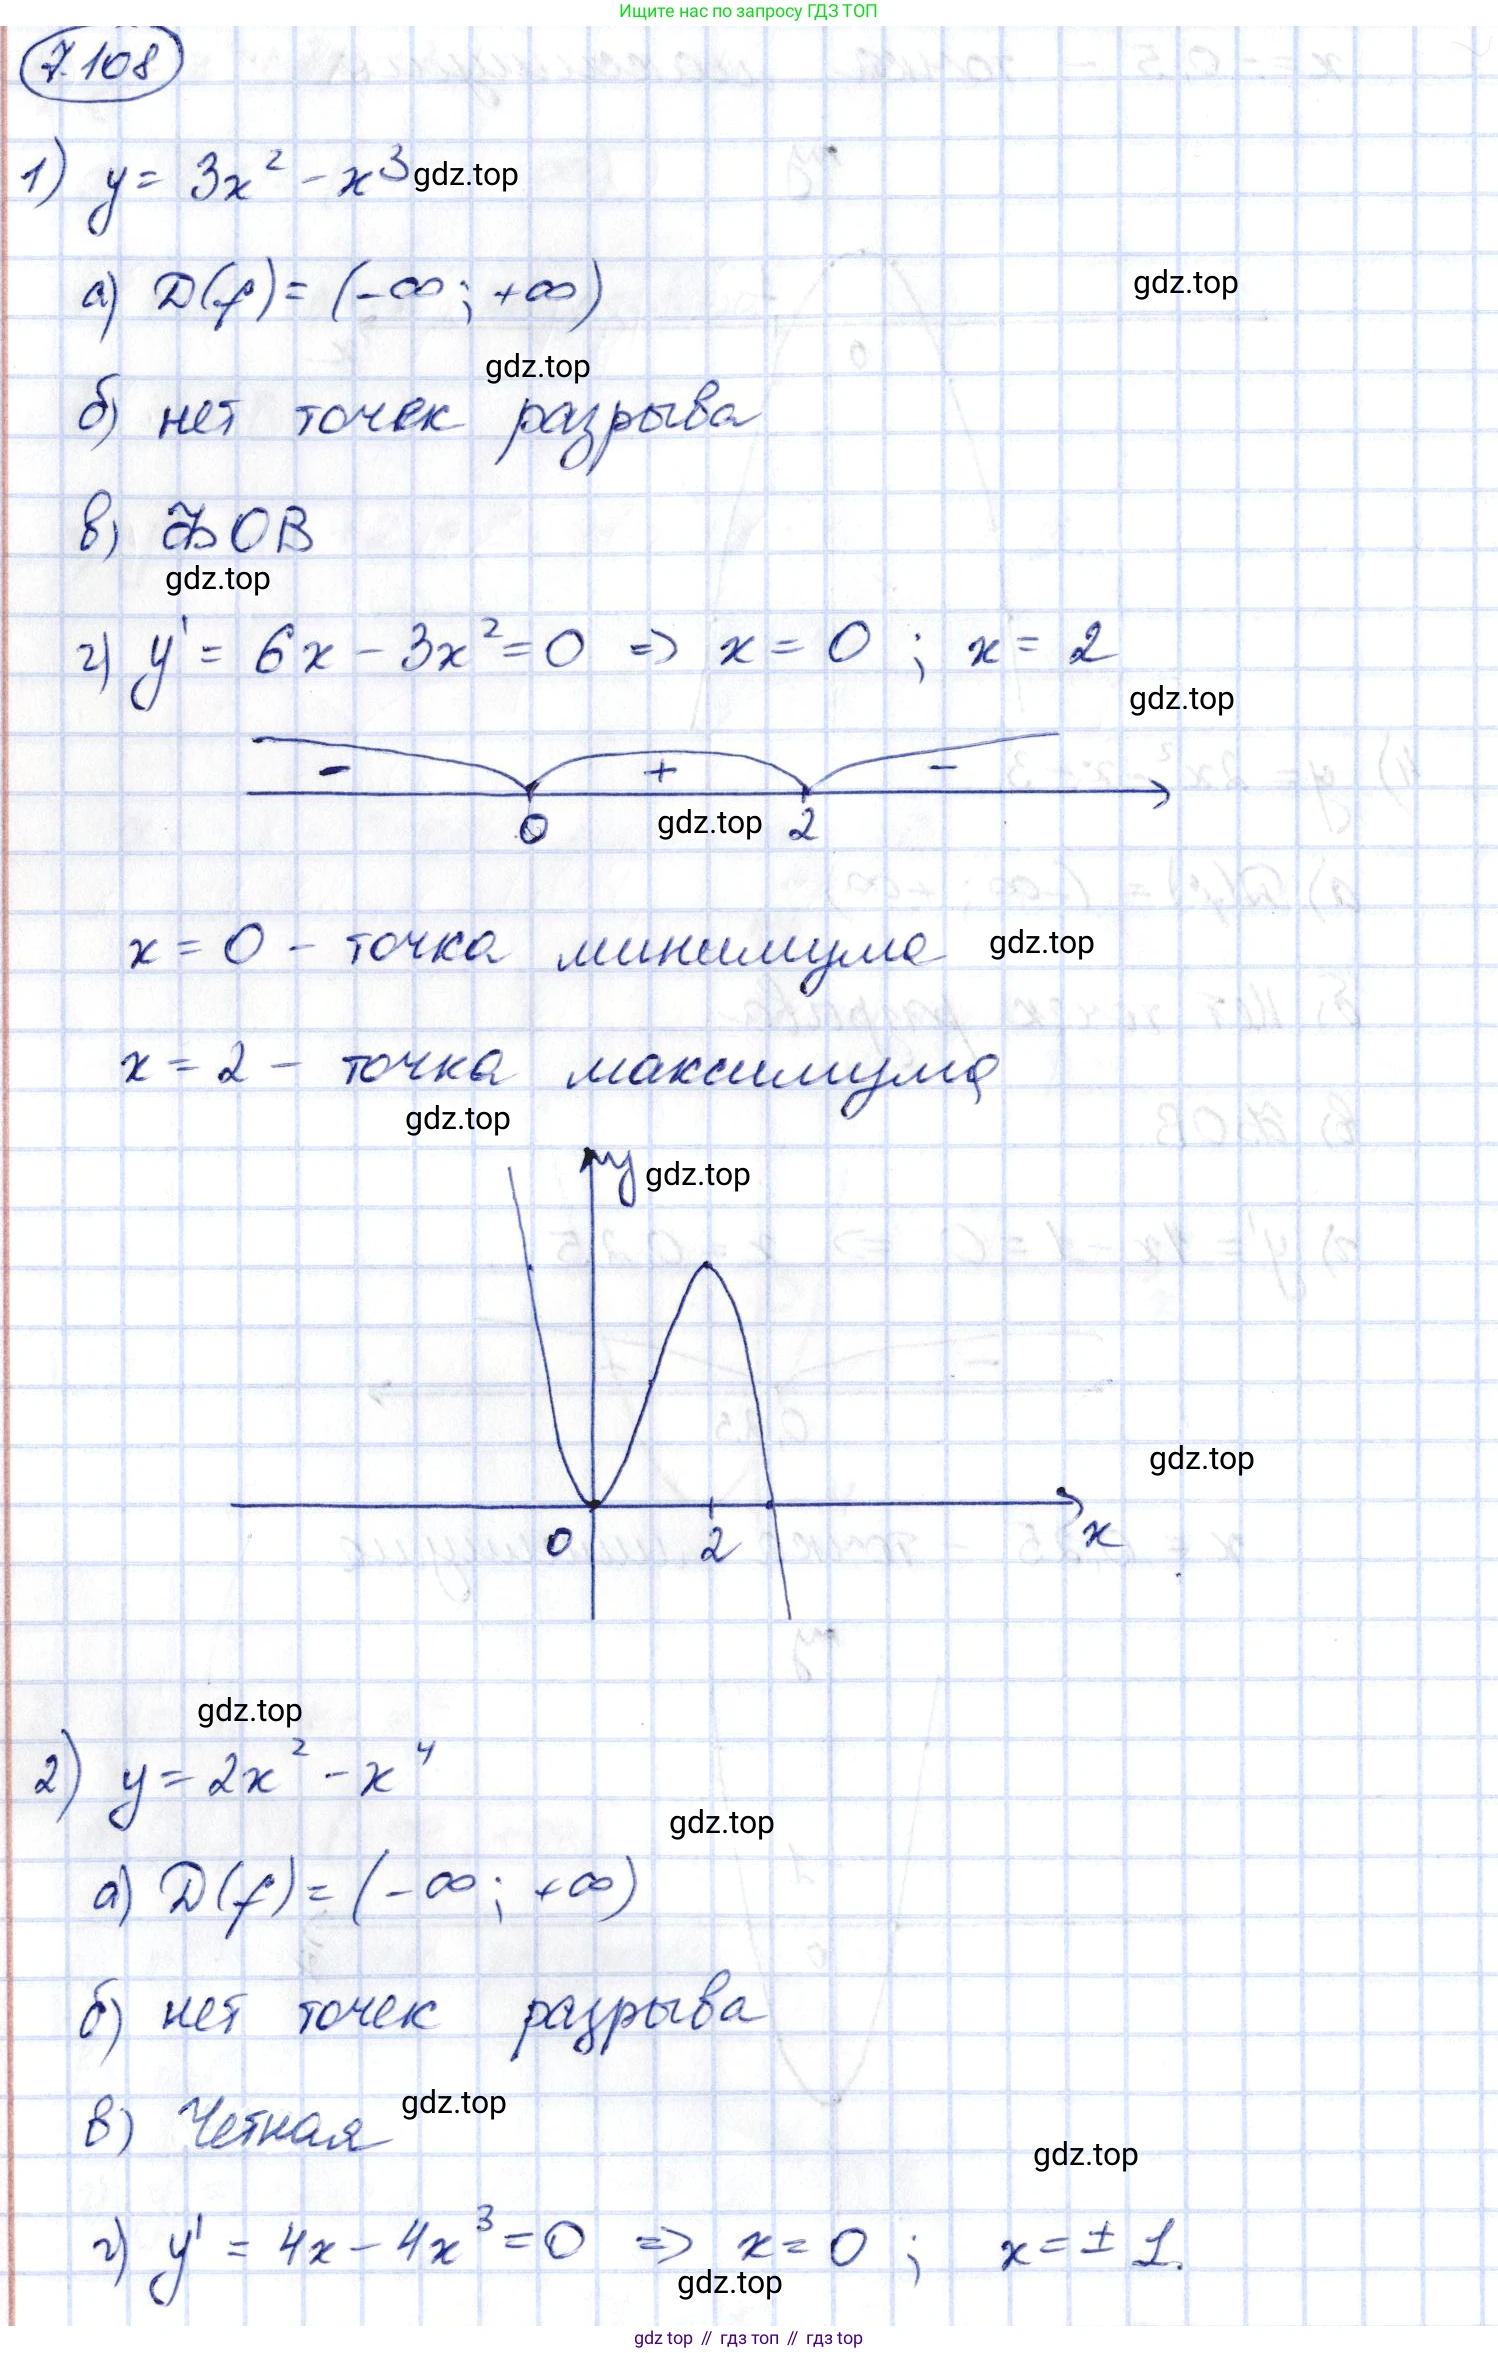 Ищите нас по запросу ГДЗ ТОП
7.108
1) y = 3x² - x³ gdz.top
а) D(f) = (-∞; +∞)
gdz.top
gdz.top
б) нет точек разрыва
в) ФОВ
gdz.top
г) y' = 6x - 3x² = 0 => x = 0 ; x = 2
gdz.top
- + -
0 gdz.top 2
x = 0 - точка минимума gdz.top
x = 2 - точка максимума
gdz.top
y gdz.top
gdz.top
0 2 x
gdz.top
2) y = 2x² - x⁴
gdz.top
а) D(f) = (-∞; +∞)
б) нет точек разрыва
в) Четная gdz.top
gdz.top
г) y' = 4x - 4x³ = 0 => x = 0 ; x = ± 1.
gdz.top
gdz top // гдз топ // гдз top